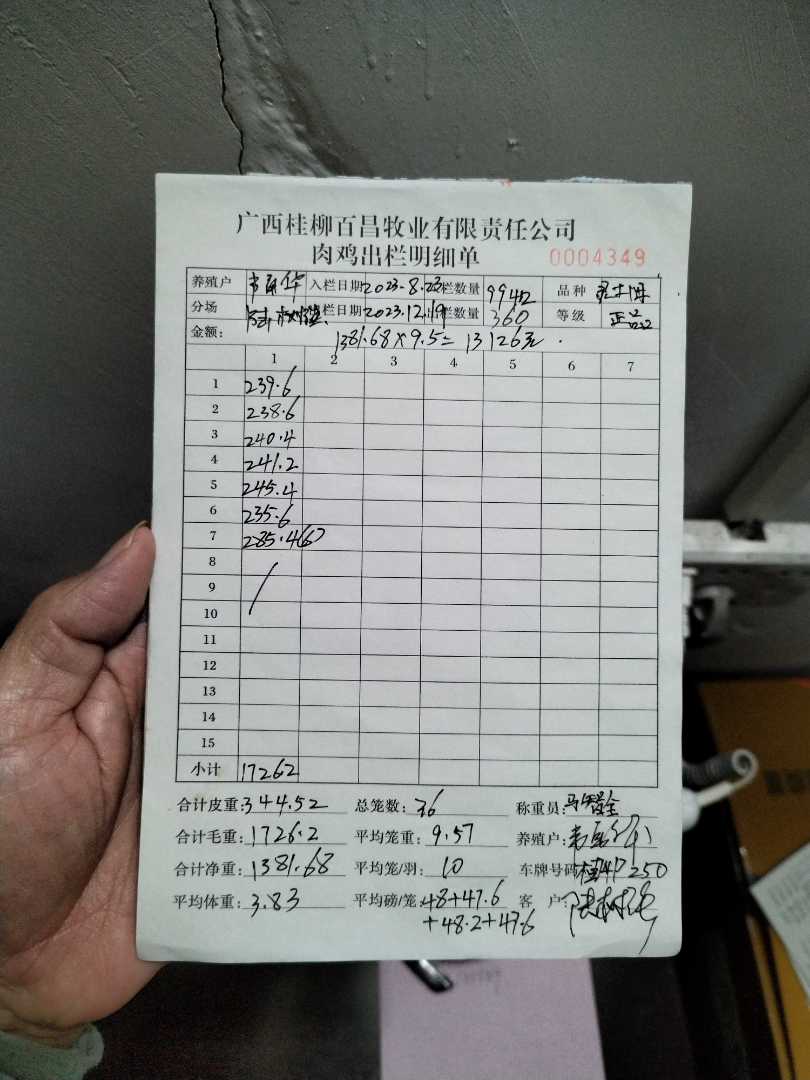 广西桂柳百昌牧业有限责任公司
肉鸡出栏明细单 0004349
养殖户 华 入栏日期 2023.8.23 栏数量 9942 品种
分场 栏日期 2023.12.19 出栏数量 360 等级 正品
金额: 1381.68×9.5=13126元.
1 2 3 4 5 6 7
1 239.6
2 238.6
3 240.4
4 241.2
5 245.4
6 235.6
7 285.4(6)
8
9
10
11
12
13
14
15
小计 17262
合计皮重: 344.52 总笼数: 36 称重员:
合计毛重: 1726.2 平均笼重: 9.57 养殖户:
合计净重: 1381.68 平均笼/羽: 10 车牌号码 250
平均体重: 3.83 平均磅/笼: 48+47.6 客 户:
+48.2+47.6